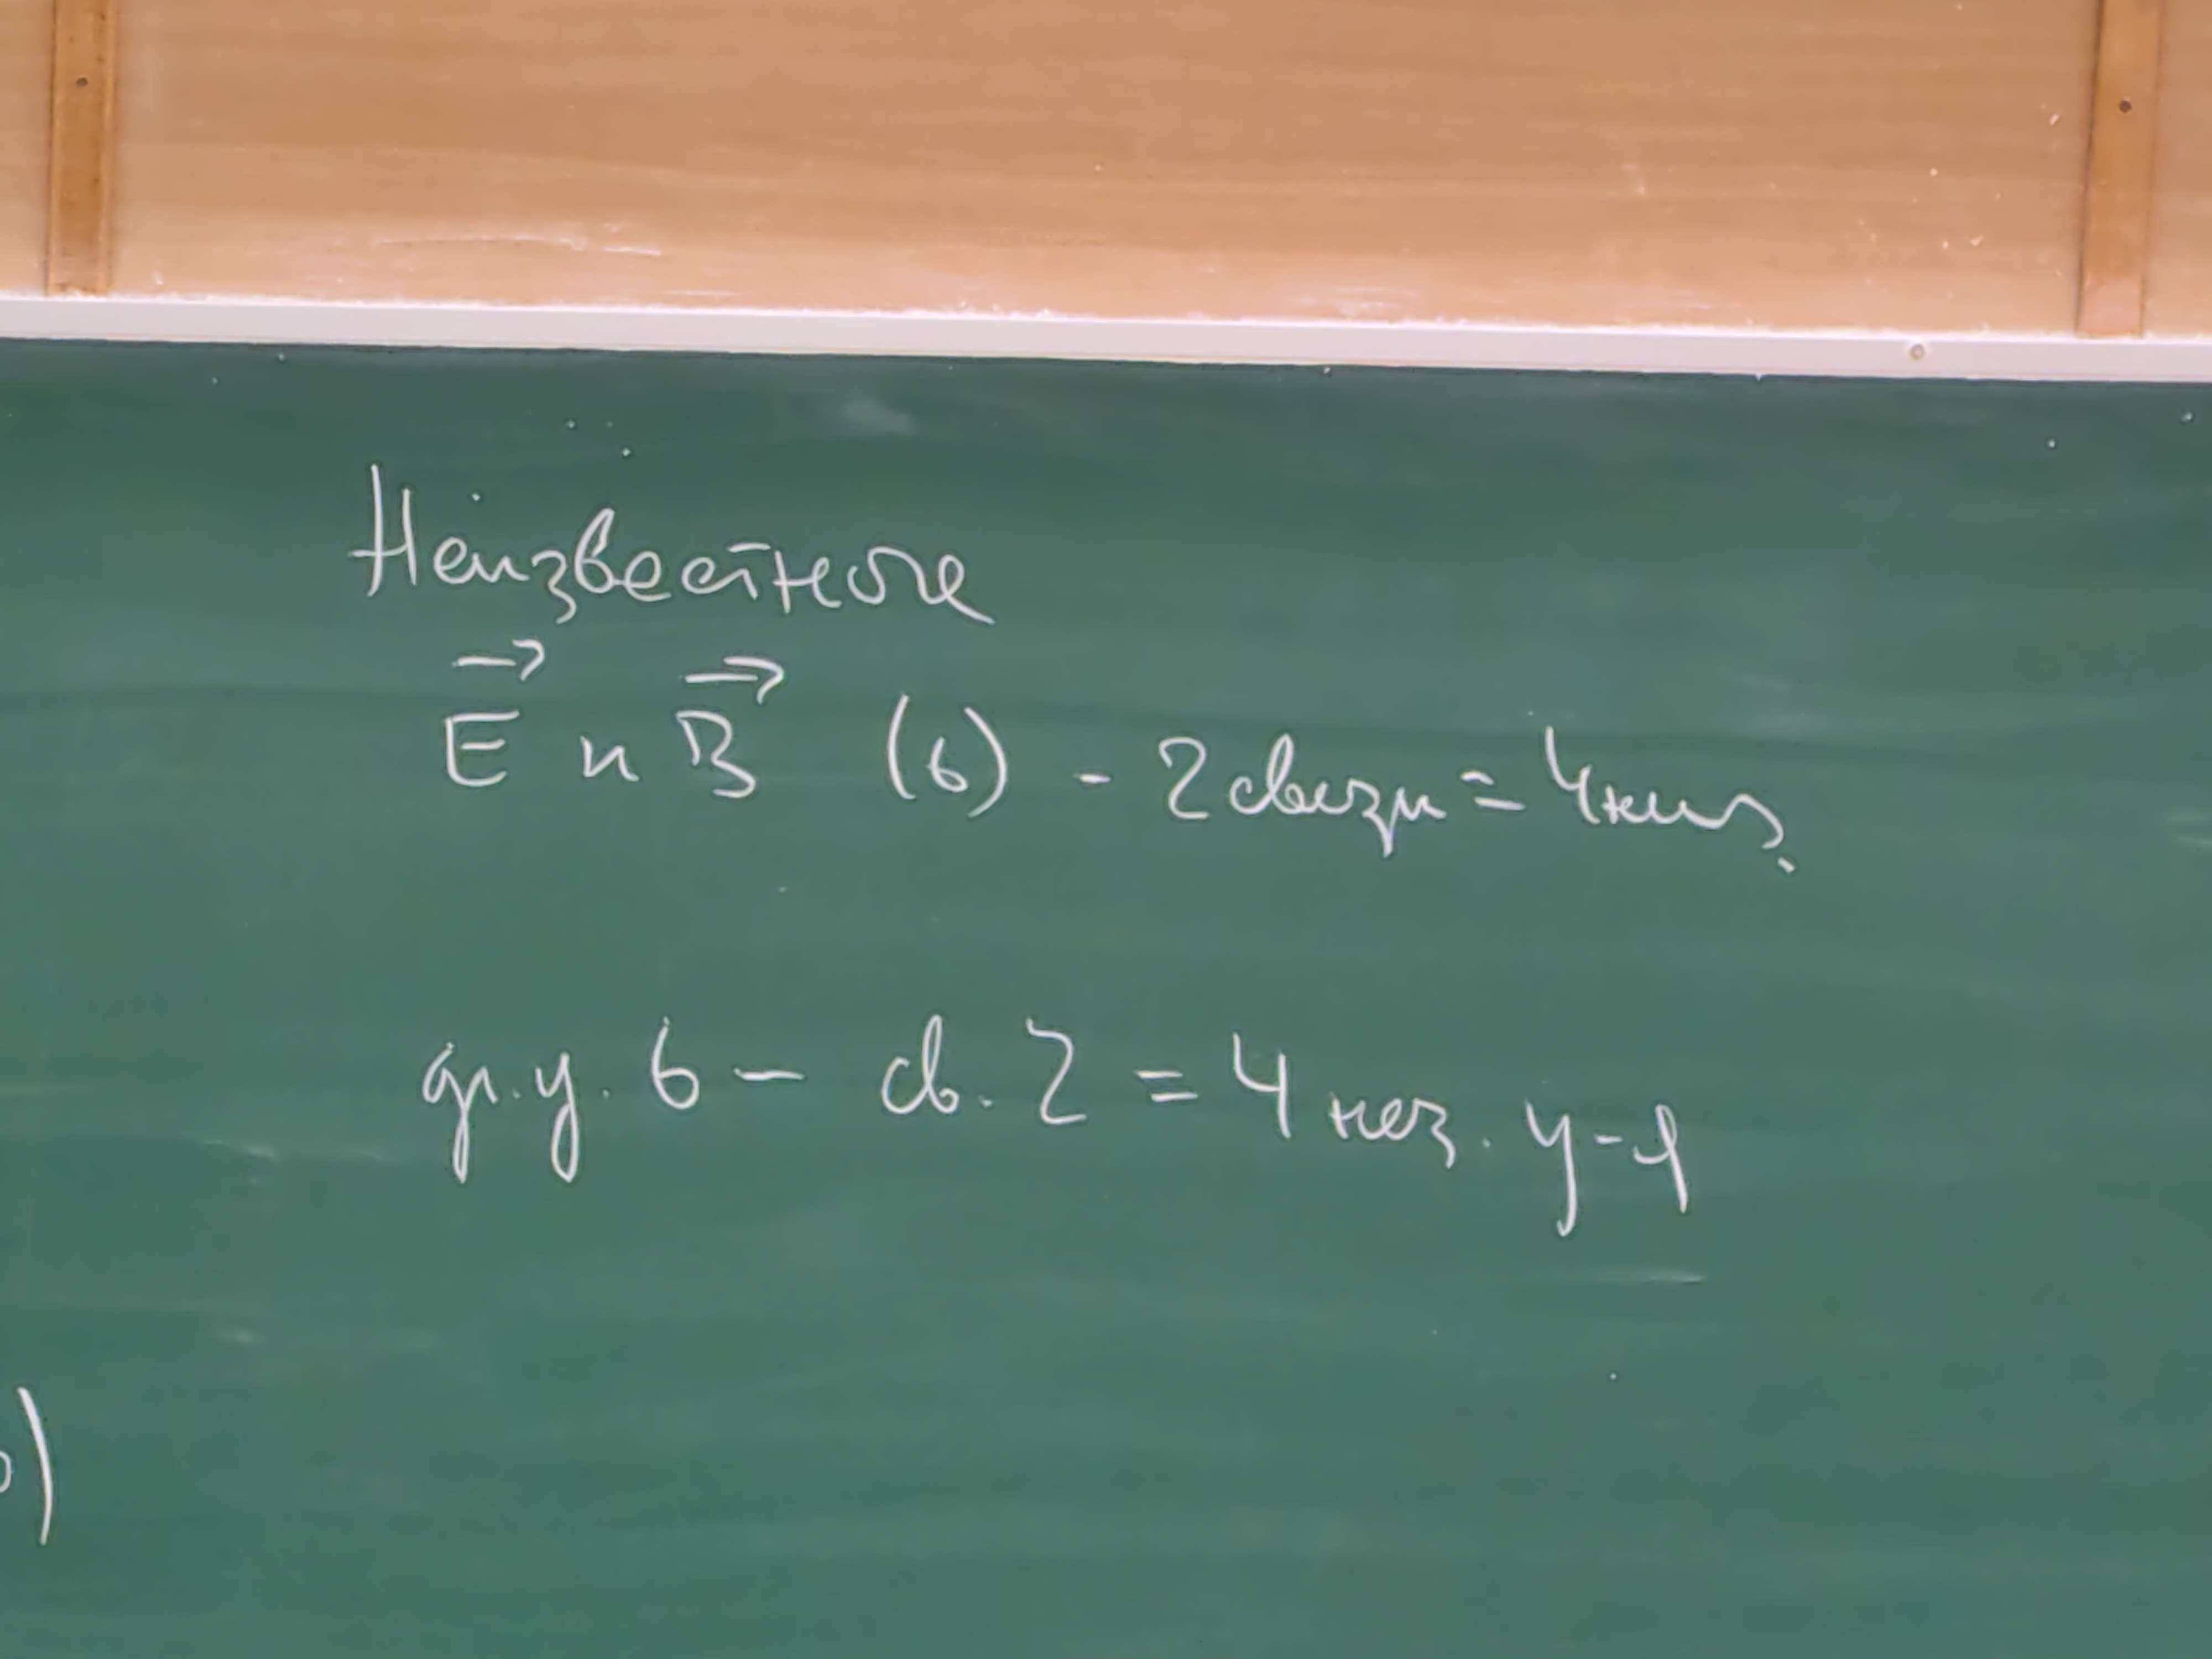 Неизвестные
E⃗ и B⃗ (6) - 2 связи = 4 неиз.
гр. у. 6 - св. 2 = 4 нез. у-я
)